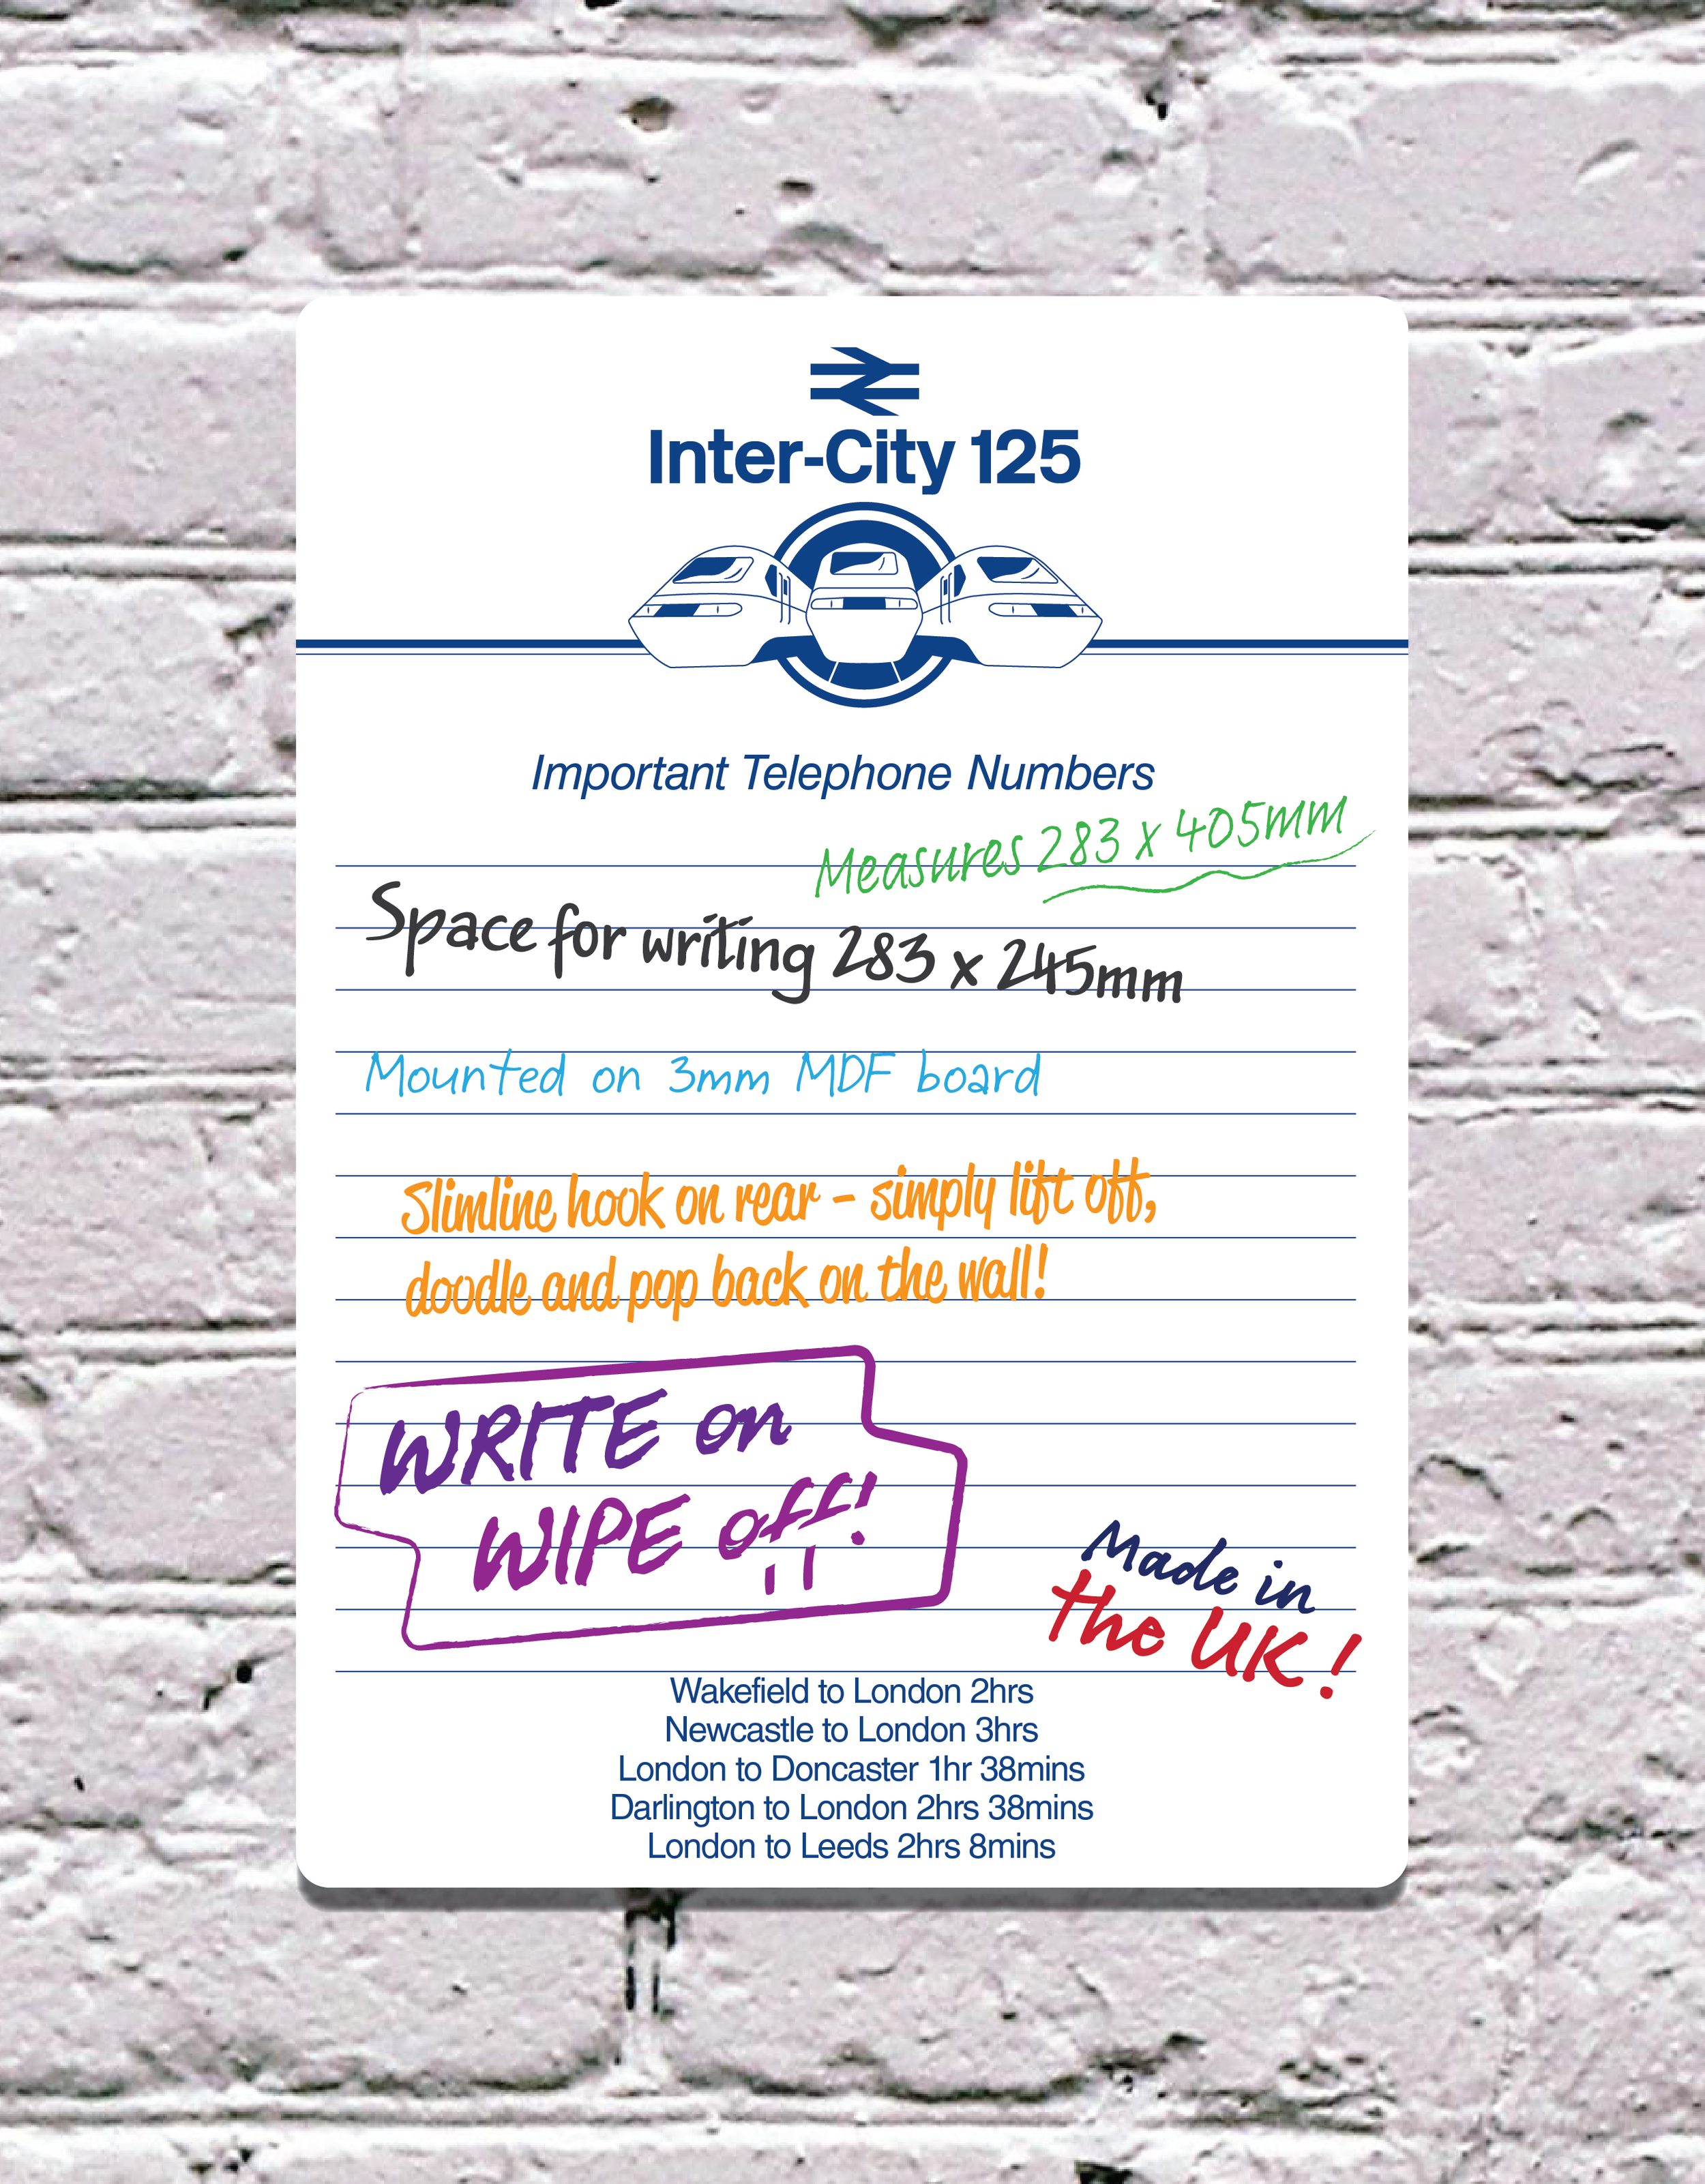 Inter-City 125
Important Telephone Numbers
Measures 283 x 405mm
Space for writing 283 x 245mm
Mounted on 3mm MDF board
Slimline hook on rear - simply lift off,
doodle and pop back on the wall!
WRITE on
WIPE off!
Made in
the UK!
Wakefield to London 2hrs
Newcastle to London 3hrs
London to Doncaster 1hr 38mins
Darlington to London 2hrs 38mins
London to Leeds 2hrs 8mins